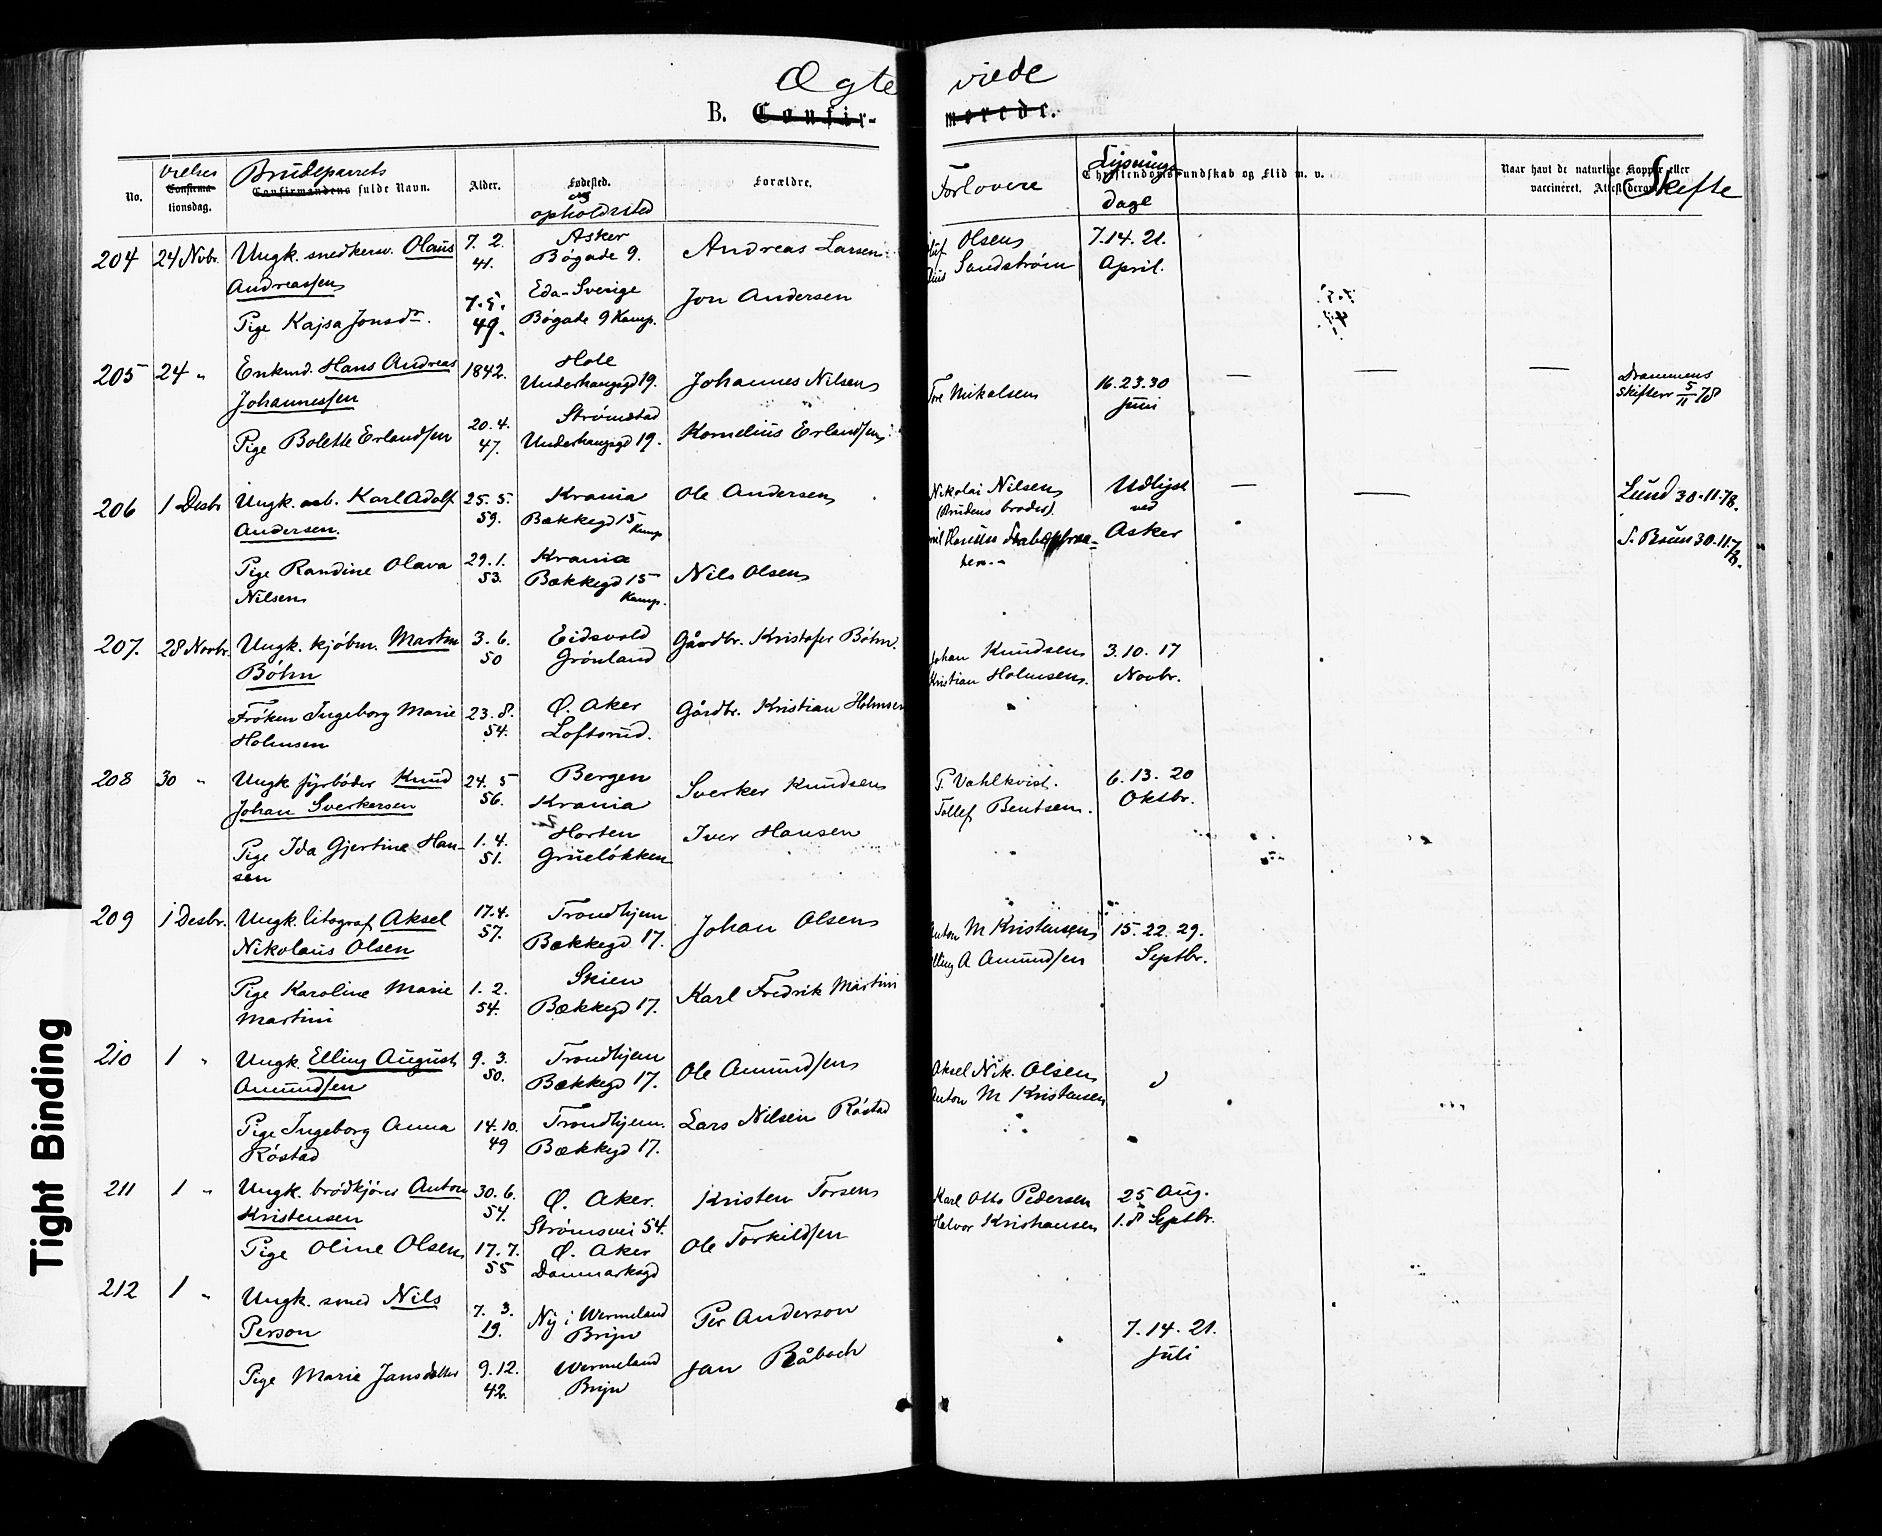 Ægte viede
B. Confir- merede.
No.
Vielses
Confirma-
tionsdag.
Brudeparrets
Confirmandens fulde Navn.
Alder.
Fødested.
og
opholdssted
Forældre.
Forlovere
Lysnings
Christendomskundskab og Flid m. v.
dage
Naar havt de naturlige Kopper eller
vaccineret. Attest derom.
Skifte
204 24 Novbr. Ungk. snedkersv. Olaus 7. 2. Asker Andreas Larsen Olsen 7.14.21.
Andreassen 41. Bøgade 9. Sandstrøm April.
7.5. Eda-Sverige Jon Andersen
Pige Kajsa Jonsdr. 49. Bøgade 9 Kamp.
205 24 " Enkmd. Hans Andreas 1842. Hole Johannes Nilsen Tore Nikolsen 16.23.30 — — — Drammens
Johannessen Underhaugsgd 19. Juni Skifterr 5/11 78
20.4. Strømstad Kornelius Erlandsen
Pige Bolette Erlandsen 47. Underhaugsgd 19.
206 1 Desbr Ungk. arb. Karl Adolf 25.5. Krania Ole Andersen Nikolai Nilsen Udlyst — — Lund 30.11.78.
Andersen. 59. Bækkegd 15 Kamp (Brudens broder). ved
Asker S. Bruun 30.11.78.
Pige Randine Olava 29.1. Krania
Nilsen 53. Bækkegd 15 Kamp. Nils Olsen
207. 28 Novbr. Ungk. kjøbm. Martin 3.6. Eidsvold Gårdbr. Kristofer Bøhn. Johan Knudsen 3.10.17
Bøhn 50 Grønland Kristian Holmsen. Novbr.
Frøken Ingeborg Marie 23.8. Ø. Aker Gårdbr. Kristian Holmsen
Holmsen 54. Loftsrud.
208 30 " Ungk. fyrbøder Knud 24.5 Bergen Sverker Knudsen P. Vahlkvist. 6.13.20
Johan Sverkersen 56. Krania Tollef Bentsen. Oktbr.
Pige Ida Gjertine Han- 1.4. Horten Iver Hansen
sen 51. Grueløkken
209 1 Desbr. Ungk. litograf Aksel 17.4. Trondhjem Johan Olsen Anton M Kristensen 15.22.29.
Nikolaus Olsen 57. Bækkegd 17. Elling A Amundsen Septbr.
Pige Karoline Marie 1.2. Skien Karl Fredrik Martini
Martini 54. Bækkegd 17.
210 1 " Ungk. Elling August 9.3. Trondhjem Ole Amundsen Aksel Nik. Olsen
Amundsen 50. Bækkegd 17. Anton M Kristensen
Pige Ingeborg Anna 14.10. Trondhjem. Lars Nilsen Røstad
Røstad 49 Bækkegd 17.
211 1 " Ungk. brødkjører Anton 30.6. Ø. Aker. Kristen Torsen Karl Otto Pedersen 25 Aug.
Kristensen 54. Strømsvei 54. Halvor Kristiansen 1.8 Septbr.
Pige Oline Olsen 17.7. Ø. Aker Ole Torkildsen
55 Danmarksgd
212 1 " Ungk. smed Nils 7. 3. Ny i Wermeland Per Anderson
Person 19. Bryn 7.14.21.
Pige Marie Jansdatter 9.12. Wermeland Jan Råbach Juli
42. Bryn
Tight Binding